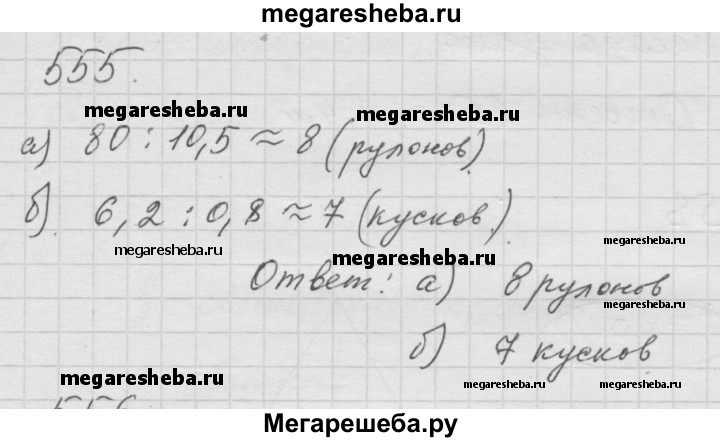 megaresheba.ru
555.
megaresheba.ru megaresheba.ru
а) 80 : 10,5 ≈ 8 (рулонов)
б) 6,2 : 0,8 ≈ 7 (кусков)
megaresheba.ru megaresheba.ru megaresheba.ru
Ответ: а) 8 рулонов
megaresheba.ru
б) 7 кусков
megaresheba.ru megaresheba.ru megaresheba.ru
556
Мегарешеба.ру